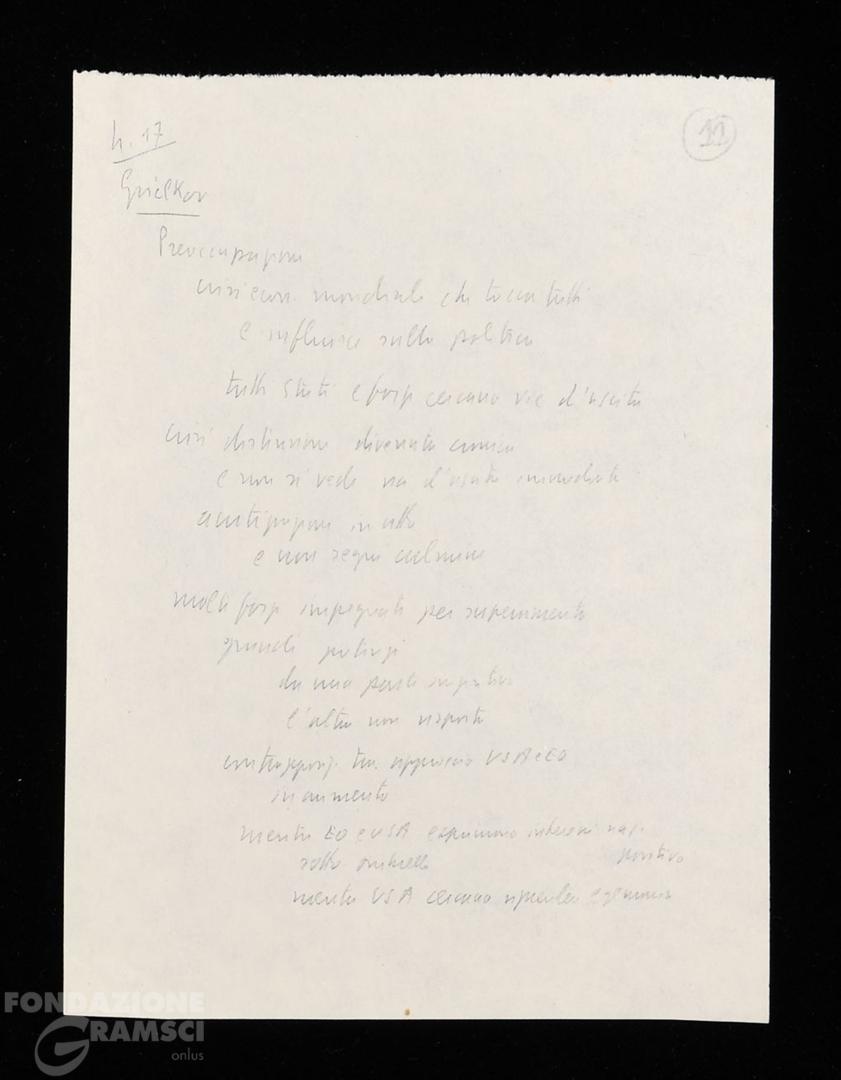 h. 17
11
Preoccupazioni
crisi econ. mondiale che tocca tutti
e influisce sulla politica
tutti Stati e forze cercano vie d'uscita
crisi distensione divenuta cronica
e non si vede via d'uscita immediata
anticipazioni in atto
e non segni
molte forze impegnate per superamento
grandi potenze
da una parte
l'altra non risposta
contrapposiz. tra approccio USA e EO
in aumento
mentre EO e USA esprimono interessi naz.
sotto ombrello positivo
mentre USA cercano egemonia
FONDAZIONE
GRAMSCI
onlus